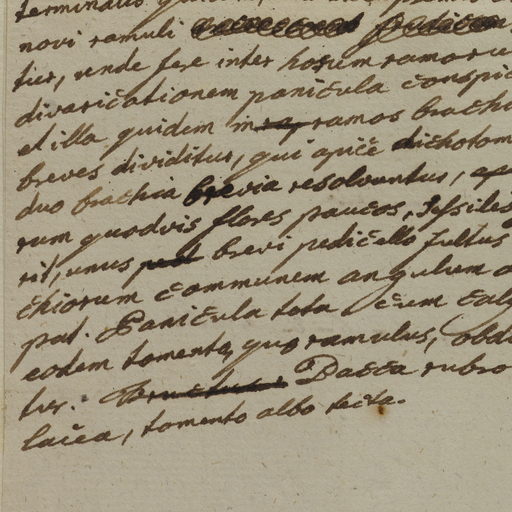 terminatus
novi ramuli
tur, unde fere inter horum ramoru
divaricationem panicula conspic
et illa quidem in ramos brachi
breves dividitur, qui apice dichotom
duo brachia brevia resolvuntur, ap
rum quodvis flores paucos, sessiles
rit, unus brevi pedicello fultus
chiorum communem angulum o
pat. Panicula tota cum caly
eodem tomento, quo ramulus, obdu
tur. Bacca rubro
lacea, tomento albo tecta.